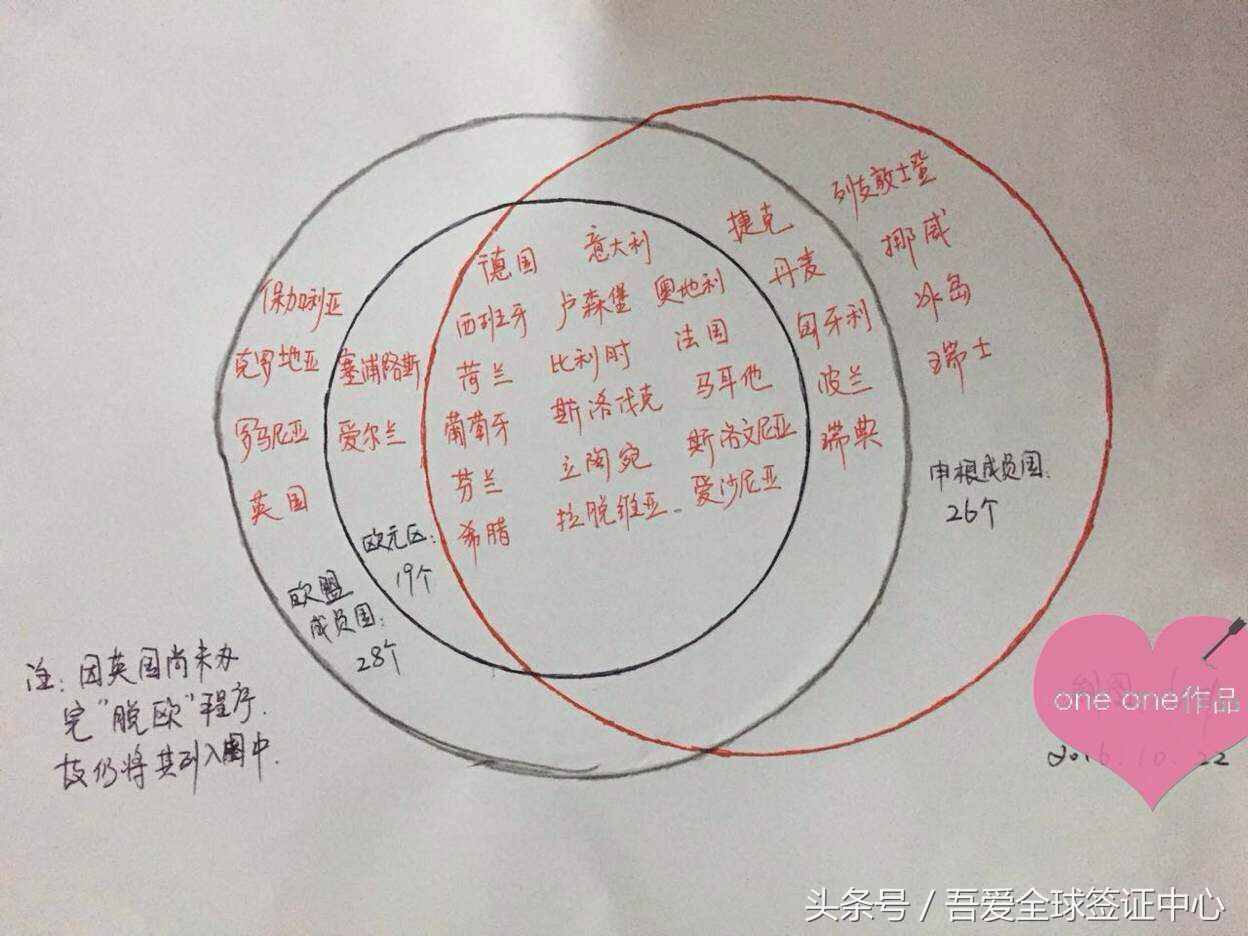 列支敦士登
捷克
挪威
德国 意大利
丹麦
保加利亚
西班牙 卢森堡 奥地利
冰岛
匈牙利
克罗地亚 塞浦路斯
荷兰 比利时 法国
瑞士
波兰
罗马尼亚 爱尔兰
葡萄牙 斯洛伐克 马耳他
瑞典
英国
芬兰 立陶宛 斯洛文尼亚
希腊 拉脱维亚 爱沙尼亚
申根成员国:
26个
欧元区:
19个
欧盟
成员国:
28个
注:因英国尚未办
完“脱欧”程序.
故仍将其列入图中.
one one作品
2016.10.22
头条号/吾爱全球签证中心